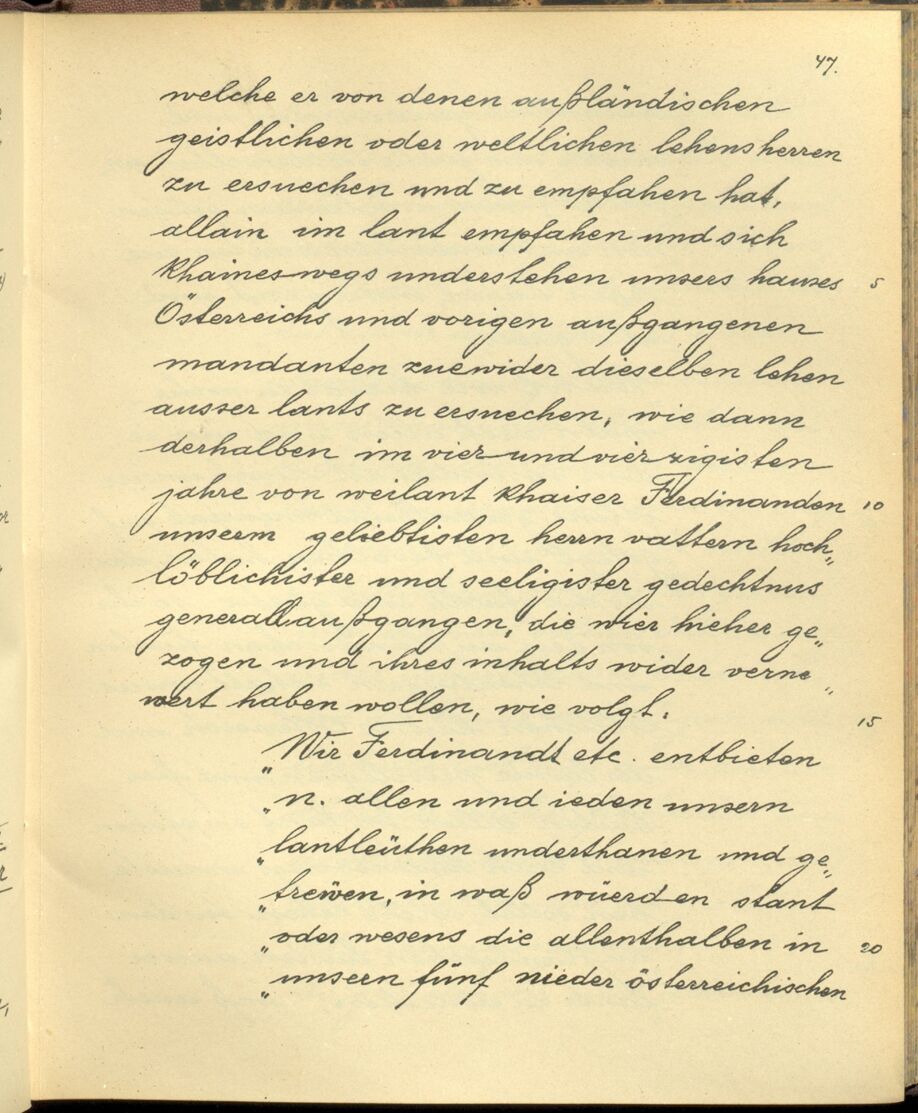 47.
welche er von denen außländischen
geistlichen oder weltlichen lehensherren
zu ersuechen und zu empfahen hat,
allain im lant empfahen und sich
khaines wegs understehen unsers hauses 5
Österreichs und vorigen außgangenen
mandanten zuewider dieselben lehen
ausser lants zu ersuechen, wie dann
derhalben im vier und vierzigisten
jahre von weilant khaiser Ferdinanden 10
unserm geliebtisten herrn vattern hoch„
löblichister und seeligister gedechtnus
general außgangen, die wier hieher ge„
zogen und ihres inhalts wider verne„
wert haben wollen, wie volgt: 15
„Wir Ferdinandt etc. entbieten
„n. allen und ieden unsern
„lantleüthen underthanen und ge„
„treẅen, in waß wüerden stant
„oder wesens die allenthalben in 20
„unsern fünf nieder österreichischen